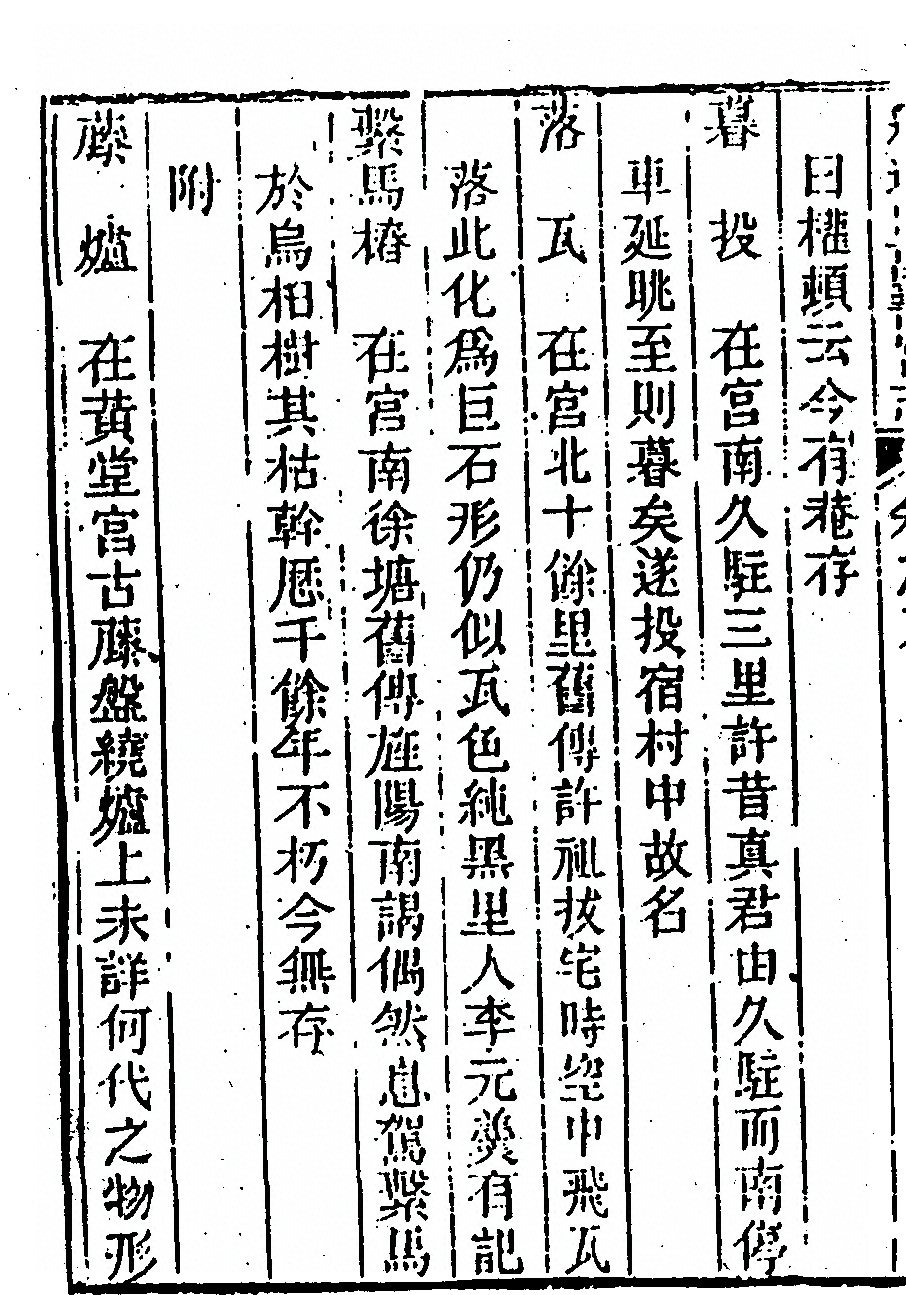 曰櫃頓云今有菴存
暮　投　在宮南久駐三里許昔真君由久駐而南停
車延眺至則暮矣遂投宿村中故名
落　瓦　在宮北十餘里舊傳許祖拔宅時空中飛瓦
落此化爲巨石形仍似瓦色純黑里人李元美有記
繫馬樁　在宮南徐塘舊傳旌陽南謁偶然息駕繫馬
於烏桕樹其枯幹歷千餘年不朽今無存
附
藤　爐　在黃堂宮古藤盤繞爐上未詳何代之物形